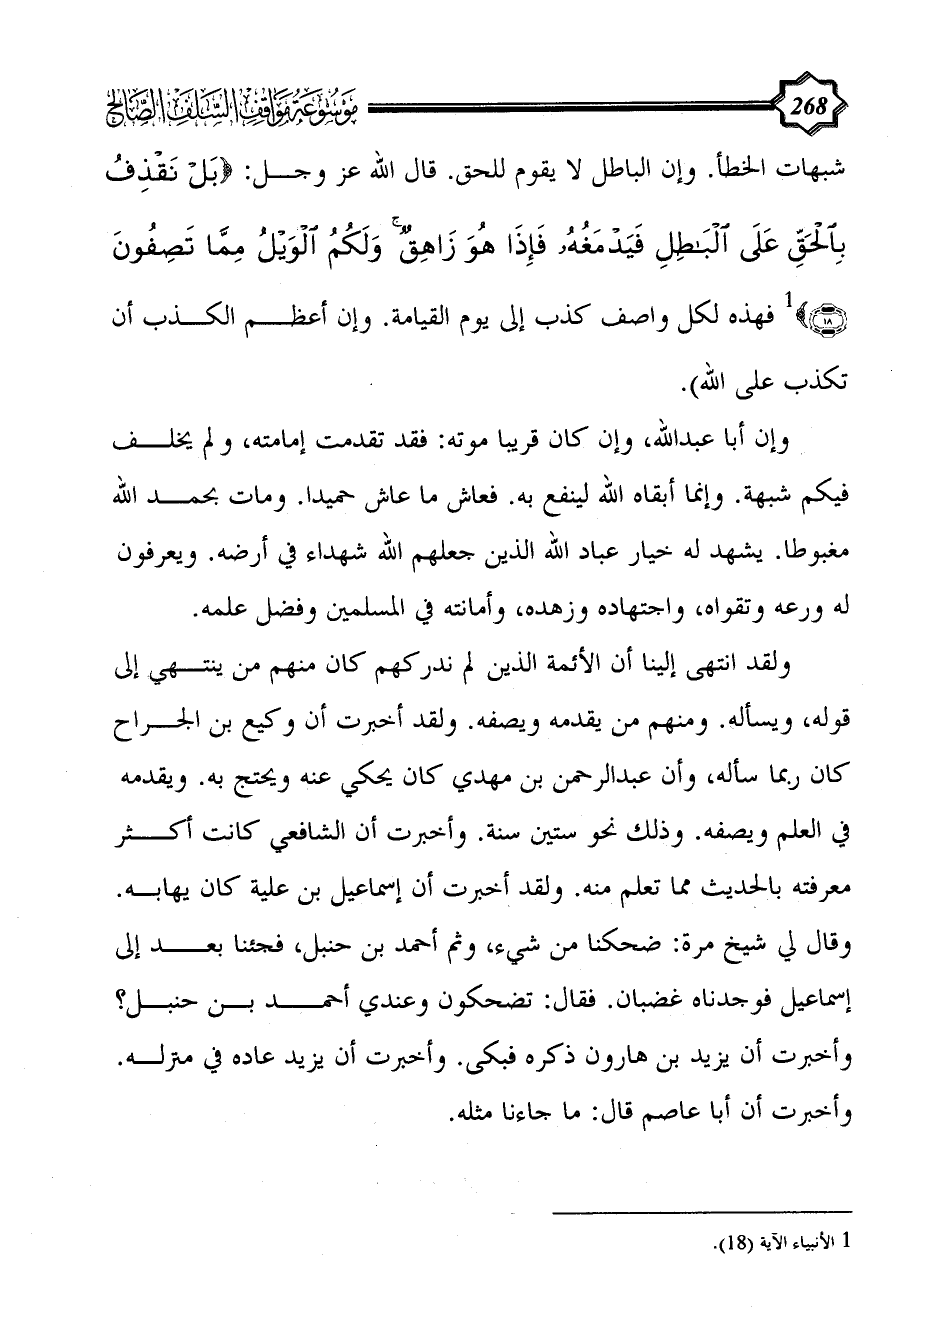 268 موسوعة مواقف السلف الصالح
شبهات الخطأ. وإن الباطل لا يقوم للحق. قال الله عز وجـــل: ﴿بَلْ نَقْذِفُ
بِٱلْحَقِّ عَلَى ٱلْبَـٰطِلِ فَيَدْمَغُهُۥ فَإِذَا هُوَ زَاهِقٌ ۚ وَلَكُمُ ٱلْوَيْلُ مِمَّا تَصِفُونَ
۝١٨﴾1 فهذه لكل واصف كذب إلى يوم القيامة. وإن أعظـــم الكـــذب أن
تكذب على الله).
وإن أبا عبدالله، وإن كان قريبا موته: فقد تقدمت إمامته، و لم يخلـــف
فيكم شبهة. وإنما أبقاه الله لينفع به. فعاش ما عاش حميدا. ومات بحمـــد الله
مغبوطا. يشهد له خيار عباد الله الذين جعلهم الله شهداء في أرضه. ويعرفون
له ورعه وتقواه، واجتهاده وزهده، وأمانته في المسلمين وفضل علمه.
ولقد انتهى إلينا أن الأئمة الذين لم ندركهم كان منهم من ينتـــهي إلى
قوله، ويسأله. ومنهم من يقدمه ويصفه. ولقد أخبرت أن وكيع بن الجـــراح
كان ربما سأله، وأن عبدالرحمن بن مهدي كان يحكي عنه ويحتج به. ويقدمه
في العلم ويصفه. وذلك نحو ستين سنة. وأخبرت أن الشافعي كانت أكـــثر
معرفته بالحديث مما تعلم منه. ولقد أخبرت أن إسماعيل بن علية كان يهابـــه.
وقال لي شيخ مرة: ضحكنا من شيء، وثم أحمد بن حنبل، فجئنا بعـــد إلى
إسماعيل فوجدناه غضبان. فقال: تضحكون وعندي أحمـــد بـــن حنبـــل؟
وأخبرت أن يزيد بن هارون ذكره فبكى. وأخبرت أن يزيد عاده في منزلـــه.
وأخبرت أن أبا عاصم قال: ما جاءنا مثله.
1 الأنبياء الآية (18).